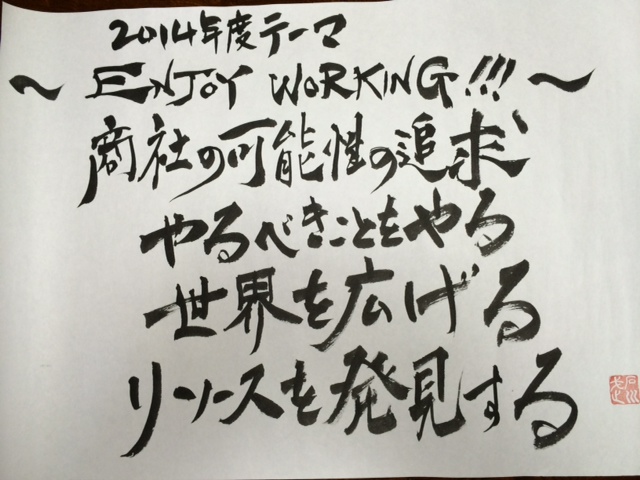 2014年度テーマ
～ ENJOY WORKING!!! ～
商社の可能性の追求
やるべきことをやる
世界を広げる
リソースを発見する